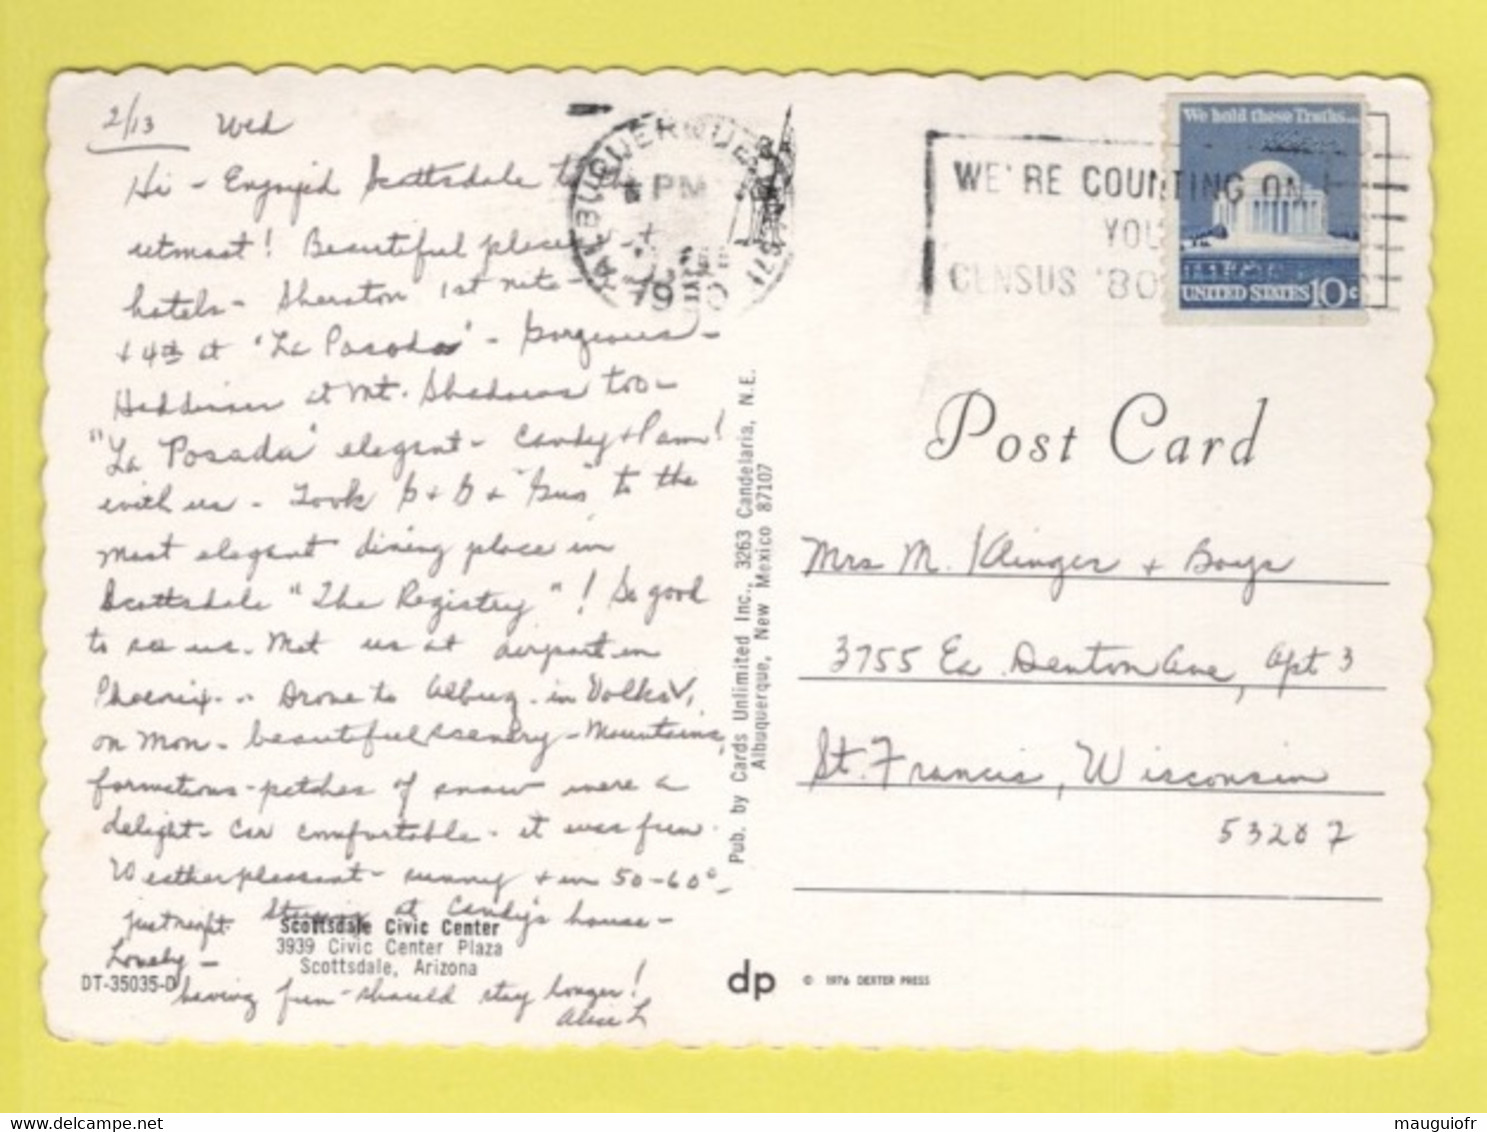 2/13 Wed
Hi - Enjoyed Scottsdale to the
utmost! Beautiful place +
hotels - Sheraton 1st nite -
+ 4th at "La Posada" - Gorgeous -
Had dinner at Mt. Shadows too -
"La Posada" elegant - Candy + Pam!
with us - Took G + B + "Gus" to the
most elegant dining place in
Scottsdale "The Registry"! So good
to see us. Met us at airport in
Phoenix - Drove to Albuq. in Volks V.
on Mon - beautiful scenery - Mountains,
formations - patches of snow were a
delight - Car comfortable - it was fun.
Weather pleasant - sunny + in 50-60° -
just right. Staying at Candy's house -
Lovely -
having fun - should stay longer!
Alice L
Scottsdale Civic Center
3939 Civic Center Plaza
Scottsdale, Arizona
DT-35035-D
Pub. by Cards Unlimited Inc., 3263 Candelaria, N.E.
Albuquerque, New Mexico 87107
ALBUQUERQUE
PM
79
WE'RE COUNTING ON
YOU
CENSUS '80
We hold these Truths...
UNITED STATES 10c
Post Card
Mrs M. Klinger + Boys
3755 Ea. Denton Ave, Apt 3
St. Francis, Wisconsin
53207
dp © 1976 DEXTER PRESS
mauguiofr